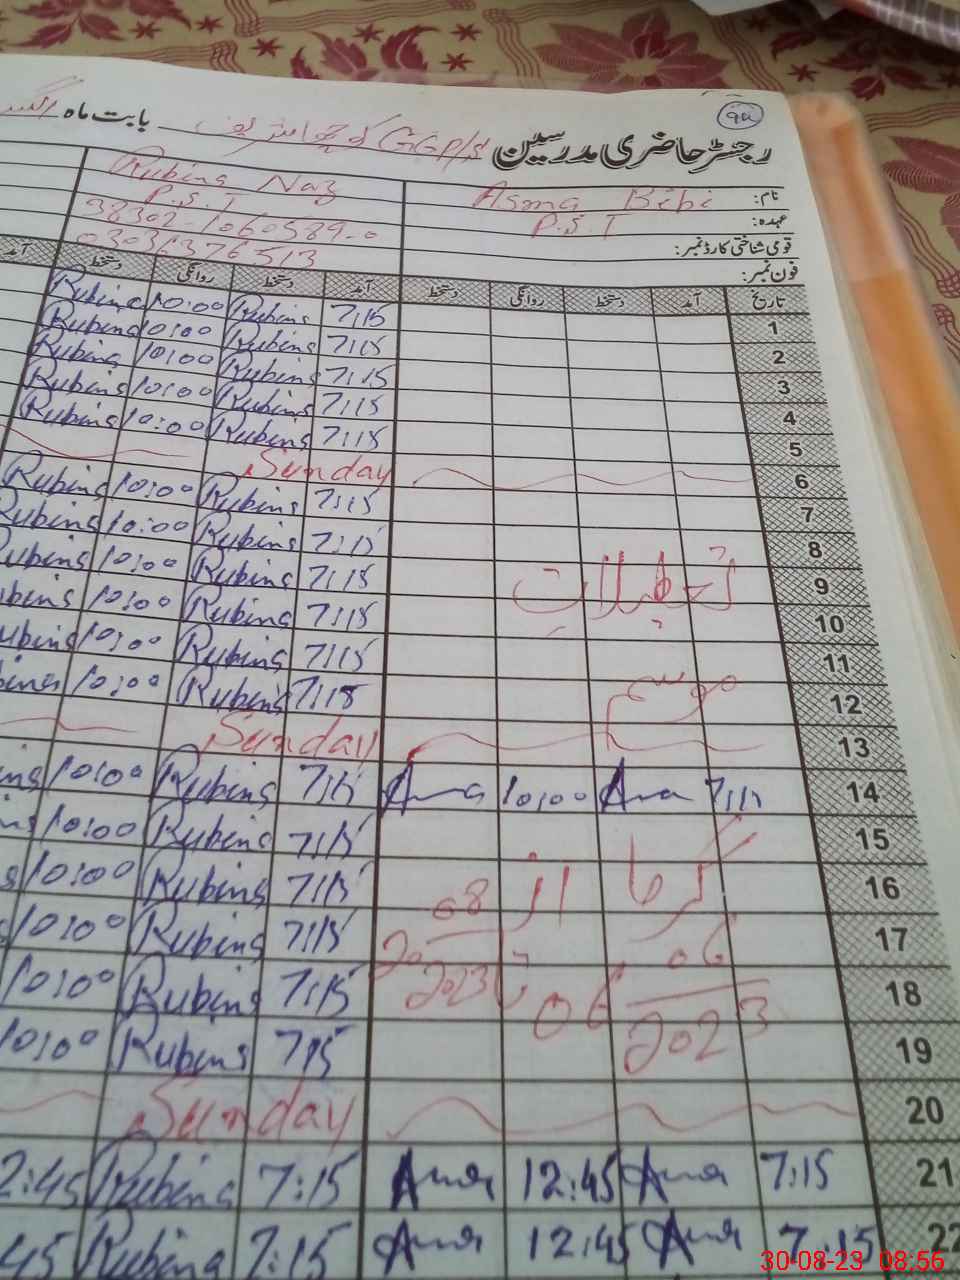 90
رجسٹر حاضری مدرسین GGP/S بابت ماہ اگست
نام: Asma Bibi Rubina Naz
عہدہ: P.S.T P.S.T
قومی شناختی کارڈ نمبر: 38302-1060589-0
فون نمبر: 03036376513
تاریخ آمد دستخط روانگی دستخط آمد دستخط روانگی دستخط آمد
1 7:15 Rubina 10:00 Rubina
2 7:15 Rubina 10:00 Rubina
3 7:15 Rubina 10:00 Rubina
4 7:15 Rubina 10:00 Rubina
5 7:15 Rubina 10:00 Rubina
6 Sunday
7 7:15 Rubina 10:00 Rubina
8 7:15 Rubina 10:00 Rubina
9 تعطیلات 7:15 Rubina 10:00 Rubina
10 7:15 Rubina 10:00
11 7:15 Rubina 10:00
12 موسم 7:15 Rubina 10:00
13 Sunday
14 7:15 Asma 10:00 Asma 7:15 Rubina 10:00
15 گرما 7:15 Rubina 10:00
16 از 7:15 Rubina 10:00
17 06 7:15 Rubina 10:00
18 06 2023 تا 20 08 2023 7:15 Rubina 10:00
19 7:15 Rubina 10:00
20 Sunday
21 7:15 Asma 12:45 Asma 7:15 Rubina 2:45
22 7:15 Asma 12:45 Asma 7:15 Rubina 45
30-08-23 08:56